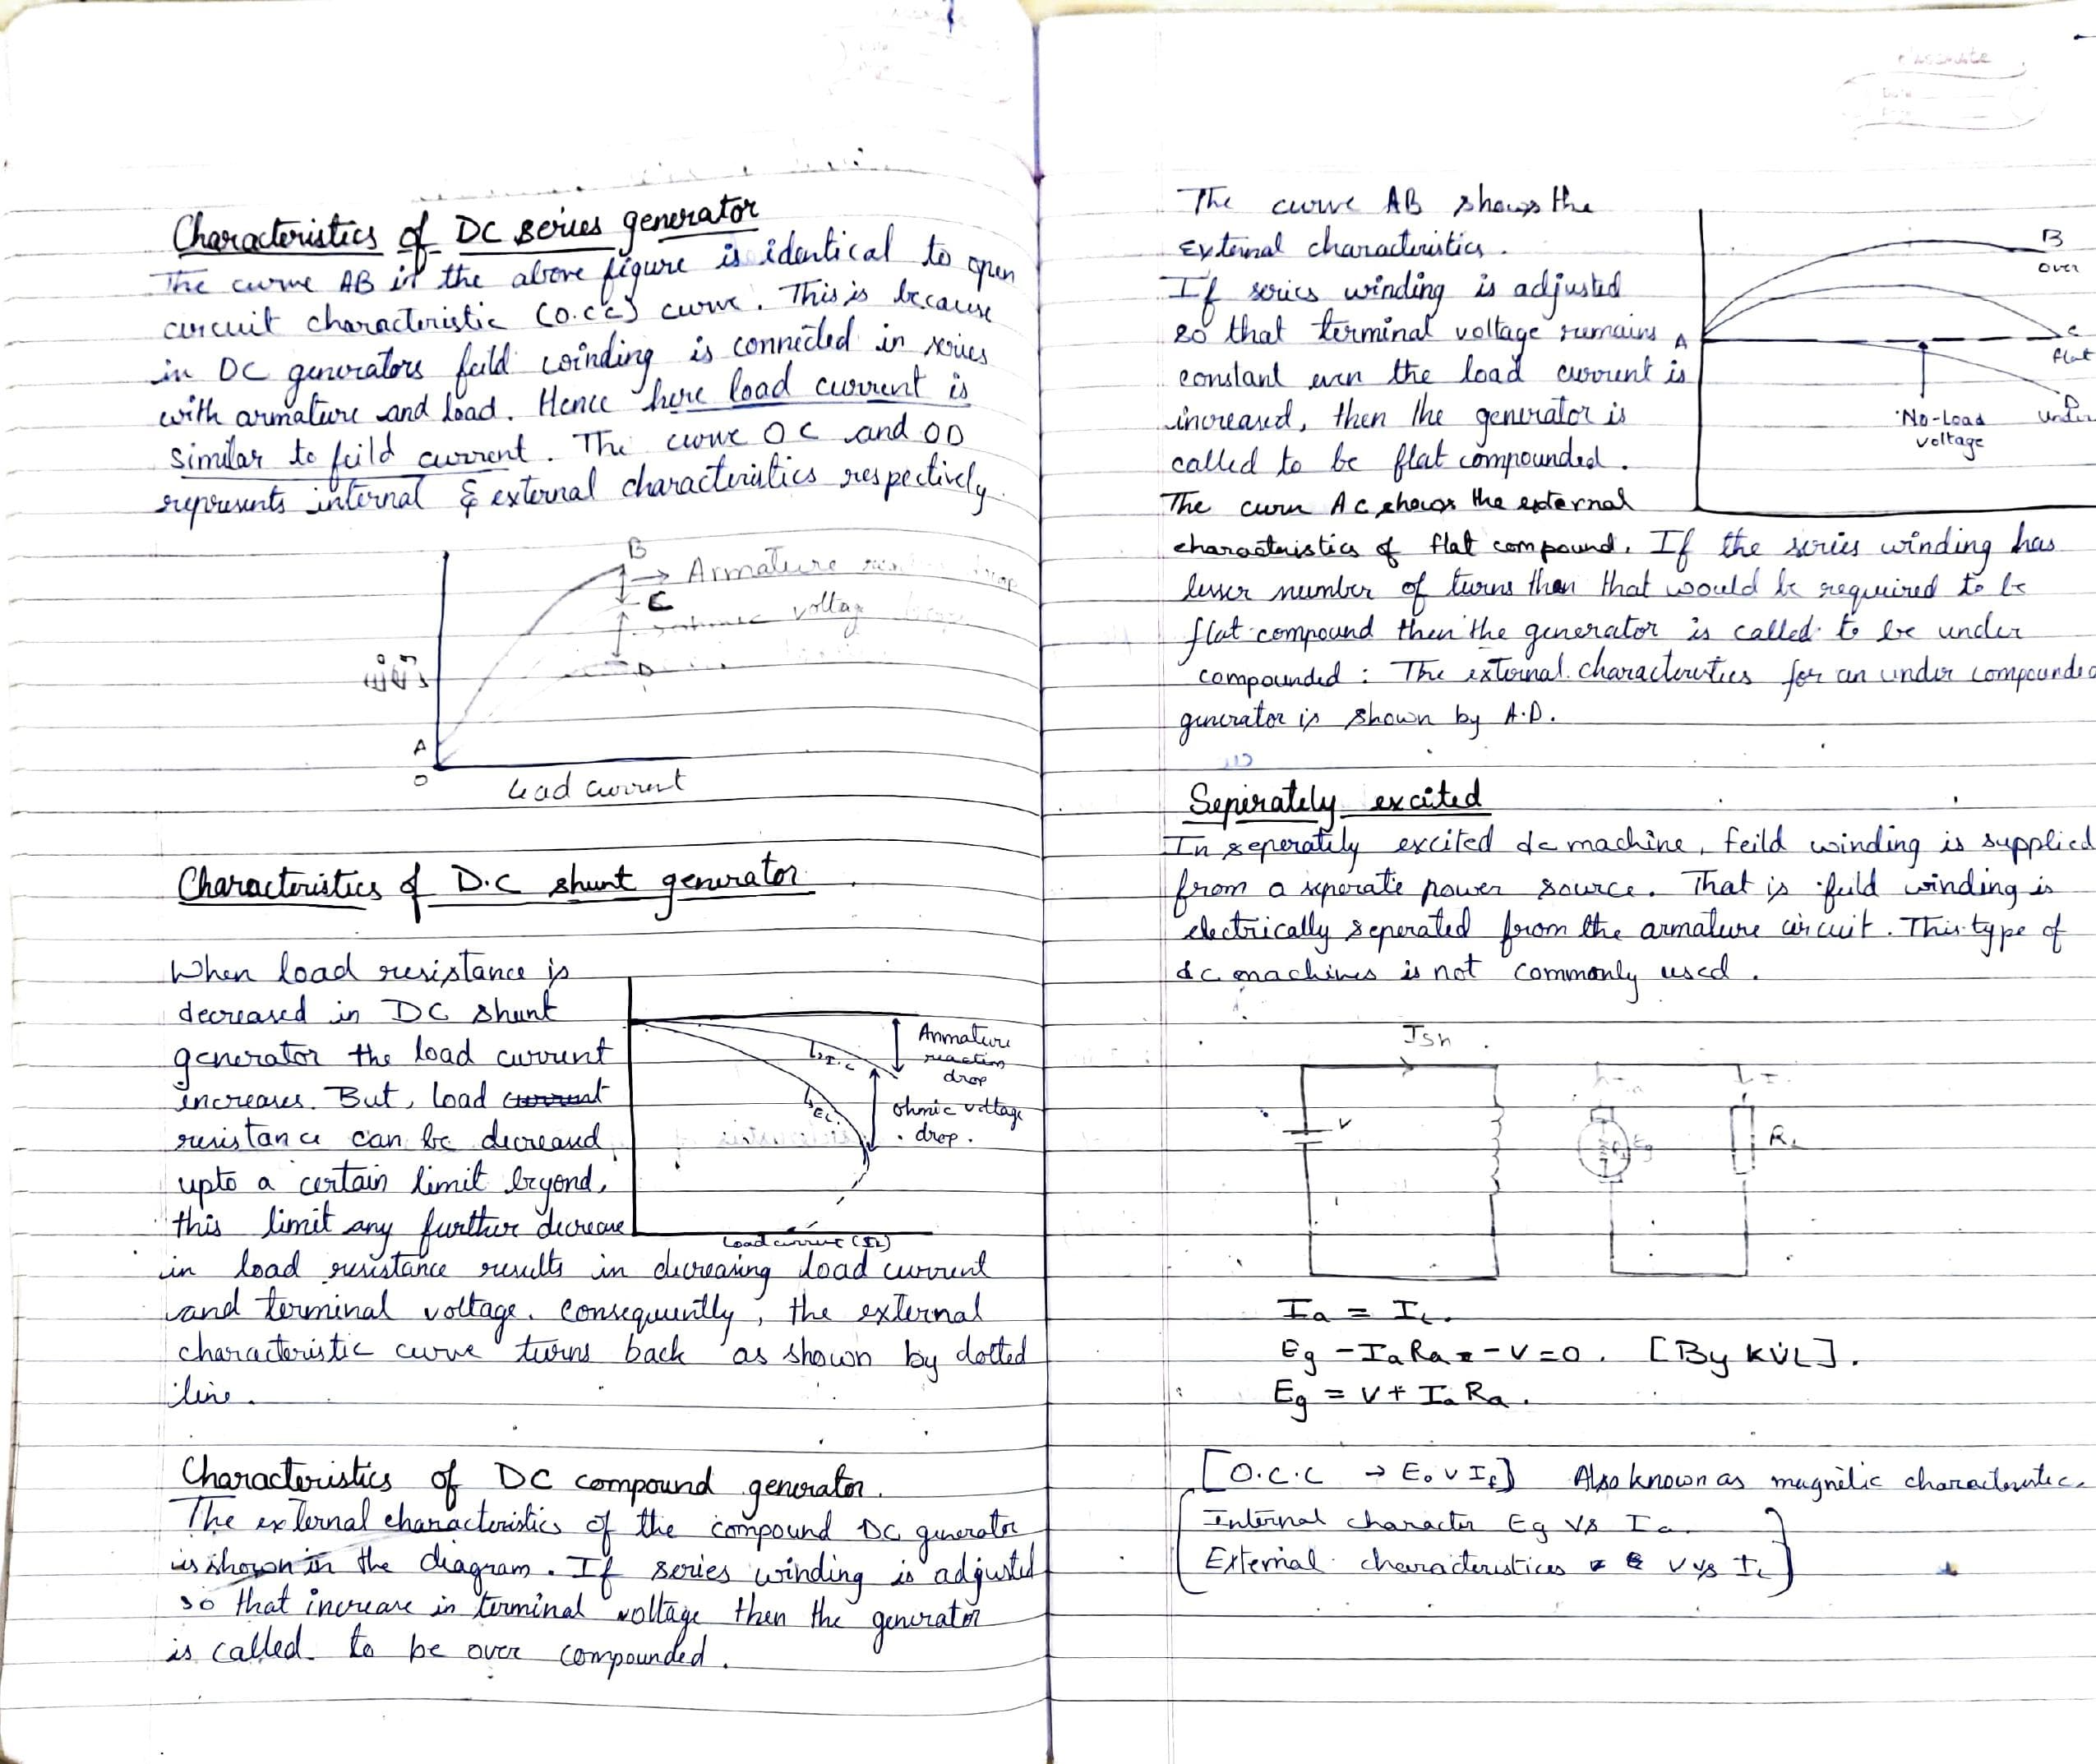 Characteristics of DC series generator
The curve AB in the above figure is identical to open
circuit characteristic (O.C.C) curve. This is because
in DC generators feild winding is connected in series
with armature and load. Hence here load current is
similar to feild current. The curve OC and OD
represents internal & external characteristics respectively.
B
→ Armature
C
voltag
D
A
O
Load current
Characteristics of D.C shunt generator
When load resistance is
decreased in DC shunt
generator the load current
increases. But, load current
resistance can be decreased
upto a certain limit beyond,
this limit any further decrease
in load resistance results in decreasing load current
and terminal voltage. Consequently, the external
characteristic curve turns back as shown by dotted
line.
Armature
reaction
drop
I.C
ohmic voltage
drop.
E.C.
Load current (IL)
Characteristics of DC compound generator.
The external characteristics of the compound DC generator
is shown in the diagram. If series winding is adjusted
so that increase in terminal voltage then the generator
is called to be over compounded.
The curve AB shows the
External characteristics.
If series winding is adjusted
so that terminal voltage remains
constant even the load current is
increased, then the generator is
called to be flat compounded.
The curn AC shows the external
characteristics of flat compound. If the series winding has
lesser number of turns than that would be required to be
flat compound then the generator is called to be under
compounded : The external characteristics for an under compounded
generator is shown by A.D.
B
over
A
C
flat
D
under
No-Load
voltage
Seperately excited
In seperately excited dc machine, feild winding is supplied
from a seperate power source. That is feild winding is
electrically seperated from the armature circuit. This type of
dc machines is not commonly used.
Ish
V
Eg
RL
Ia = IL.
Eg - IaRa - V = 0. [By KVL].
Eg = V + IaRa.
[O.C.C → E₀ v If] Also known as magnetic characteristic.
Internal character Eg Vs Ia
External characteristices V vs IL